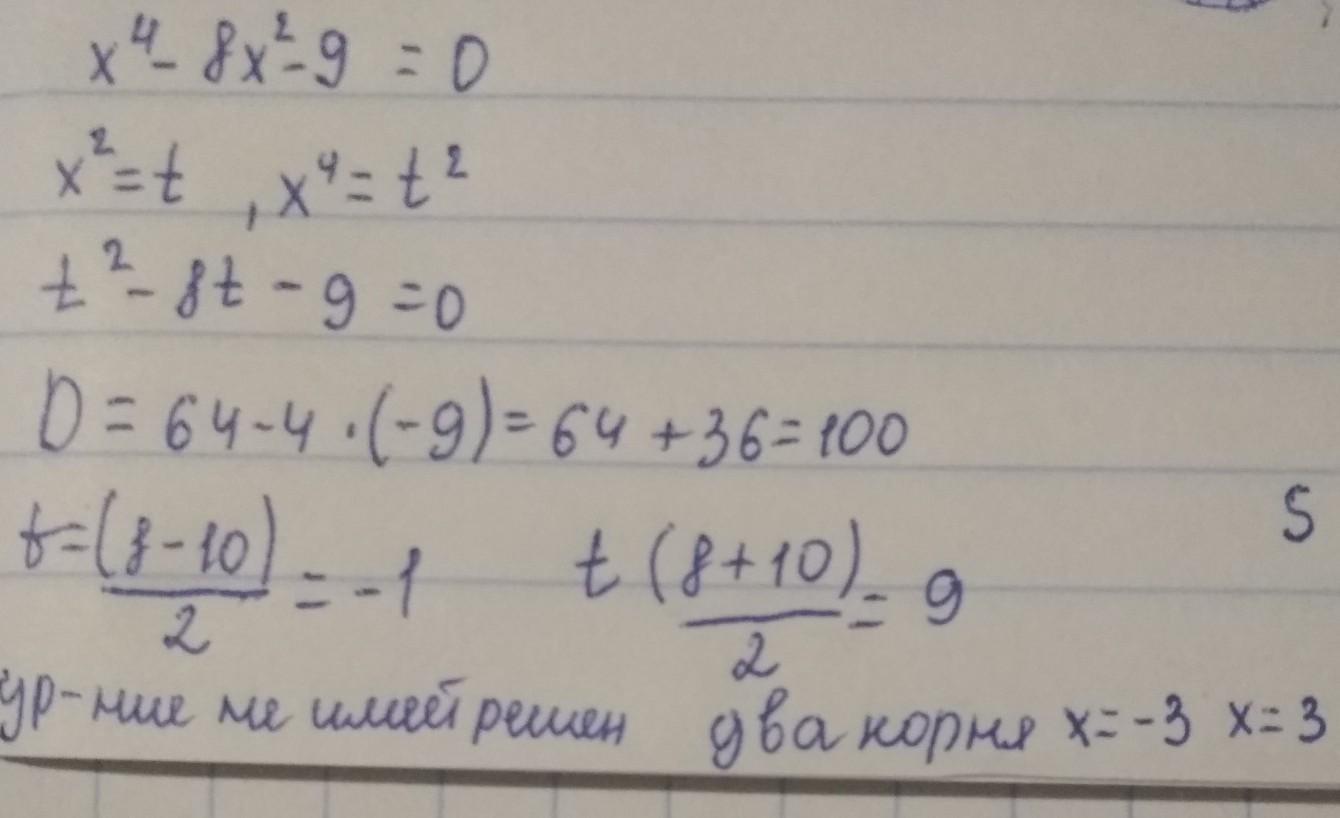 x⁴ - 8x² - 9 = 0
x² = t , x⁴ = t²
t² - 8t - 9 = 0
D = 64 - 4 · (-9) = 64 + 36 = 100
t = (8 - 10)/2 = -1 t (8 + 10)/2 = 9
5
ур-ние не имеет решен два корня x = -3 x = 3